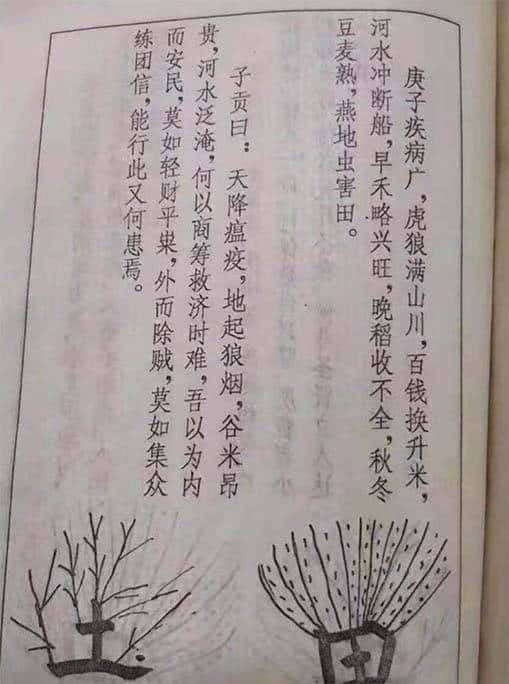 庚子疾病广，虎狼满山川，百钱换升米，
河水冲断船，早禾略兴旺，晚稻收不全，秋冬
豆麦熟，燕地虫害田。
子贡曰：天降瘟疫，地起狼烟，谷米昂
贵，河水泛淹，何以商筹救济时难，吾以为内
而安民，莫如轻财平粜，外而除贼，莫如集众
练团信，能行此又何患焉。
田
土